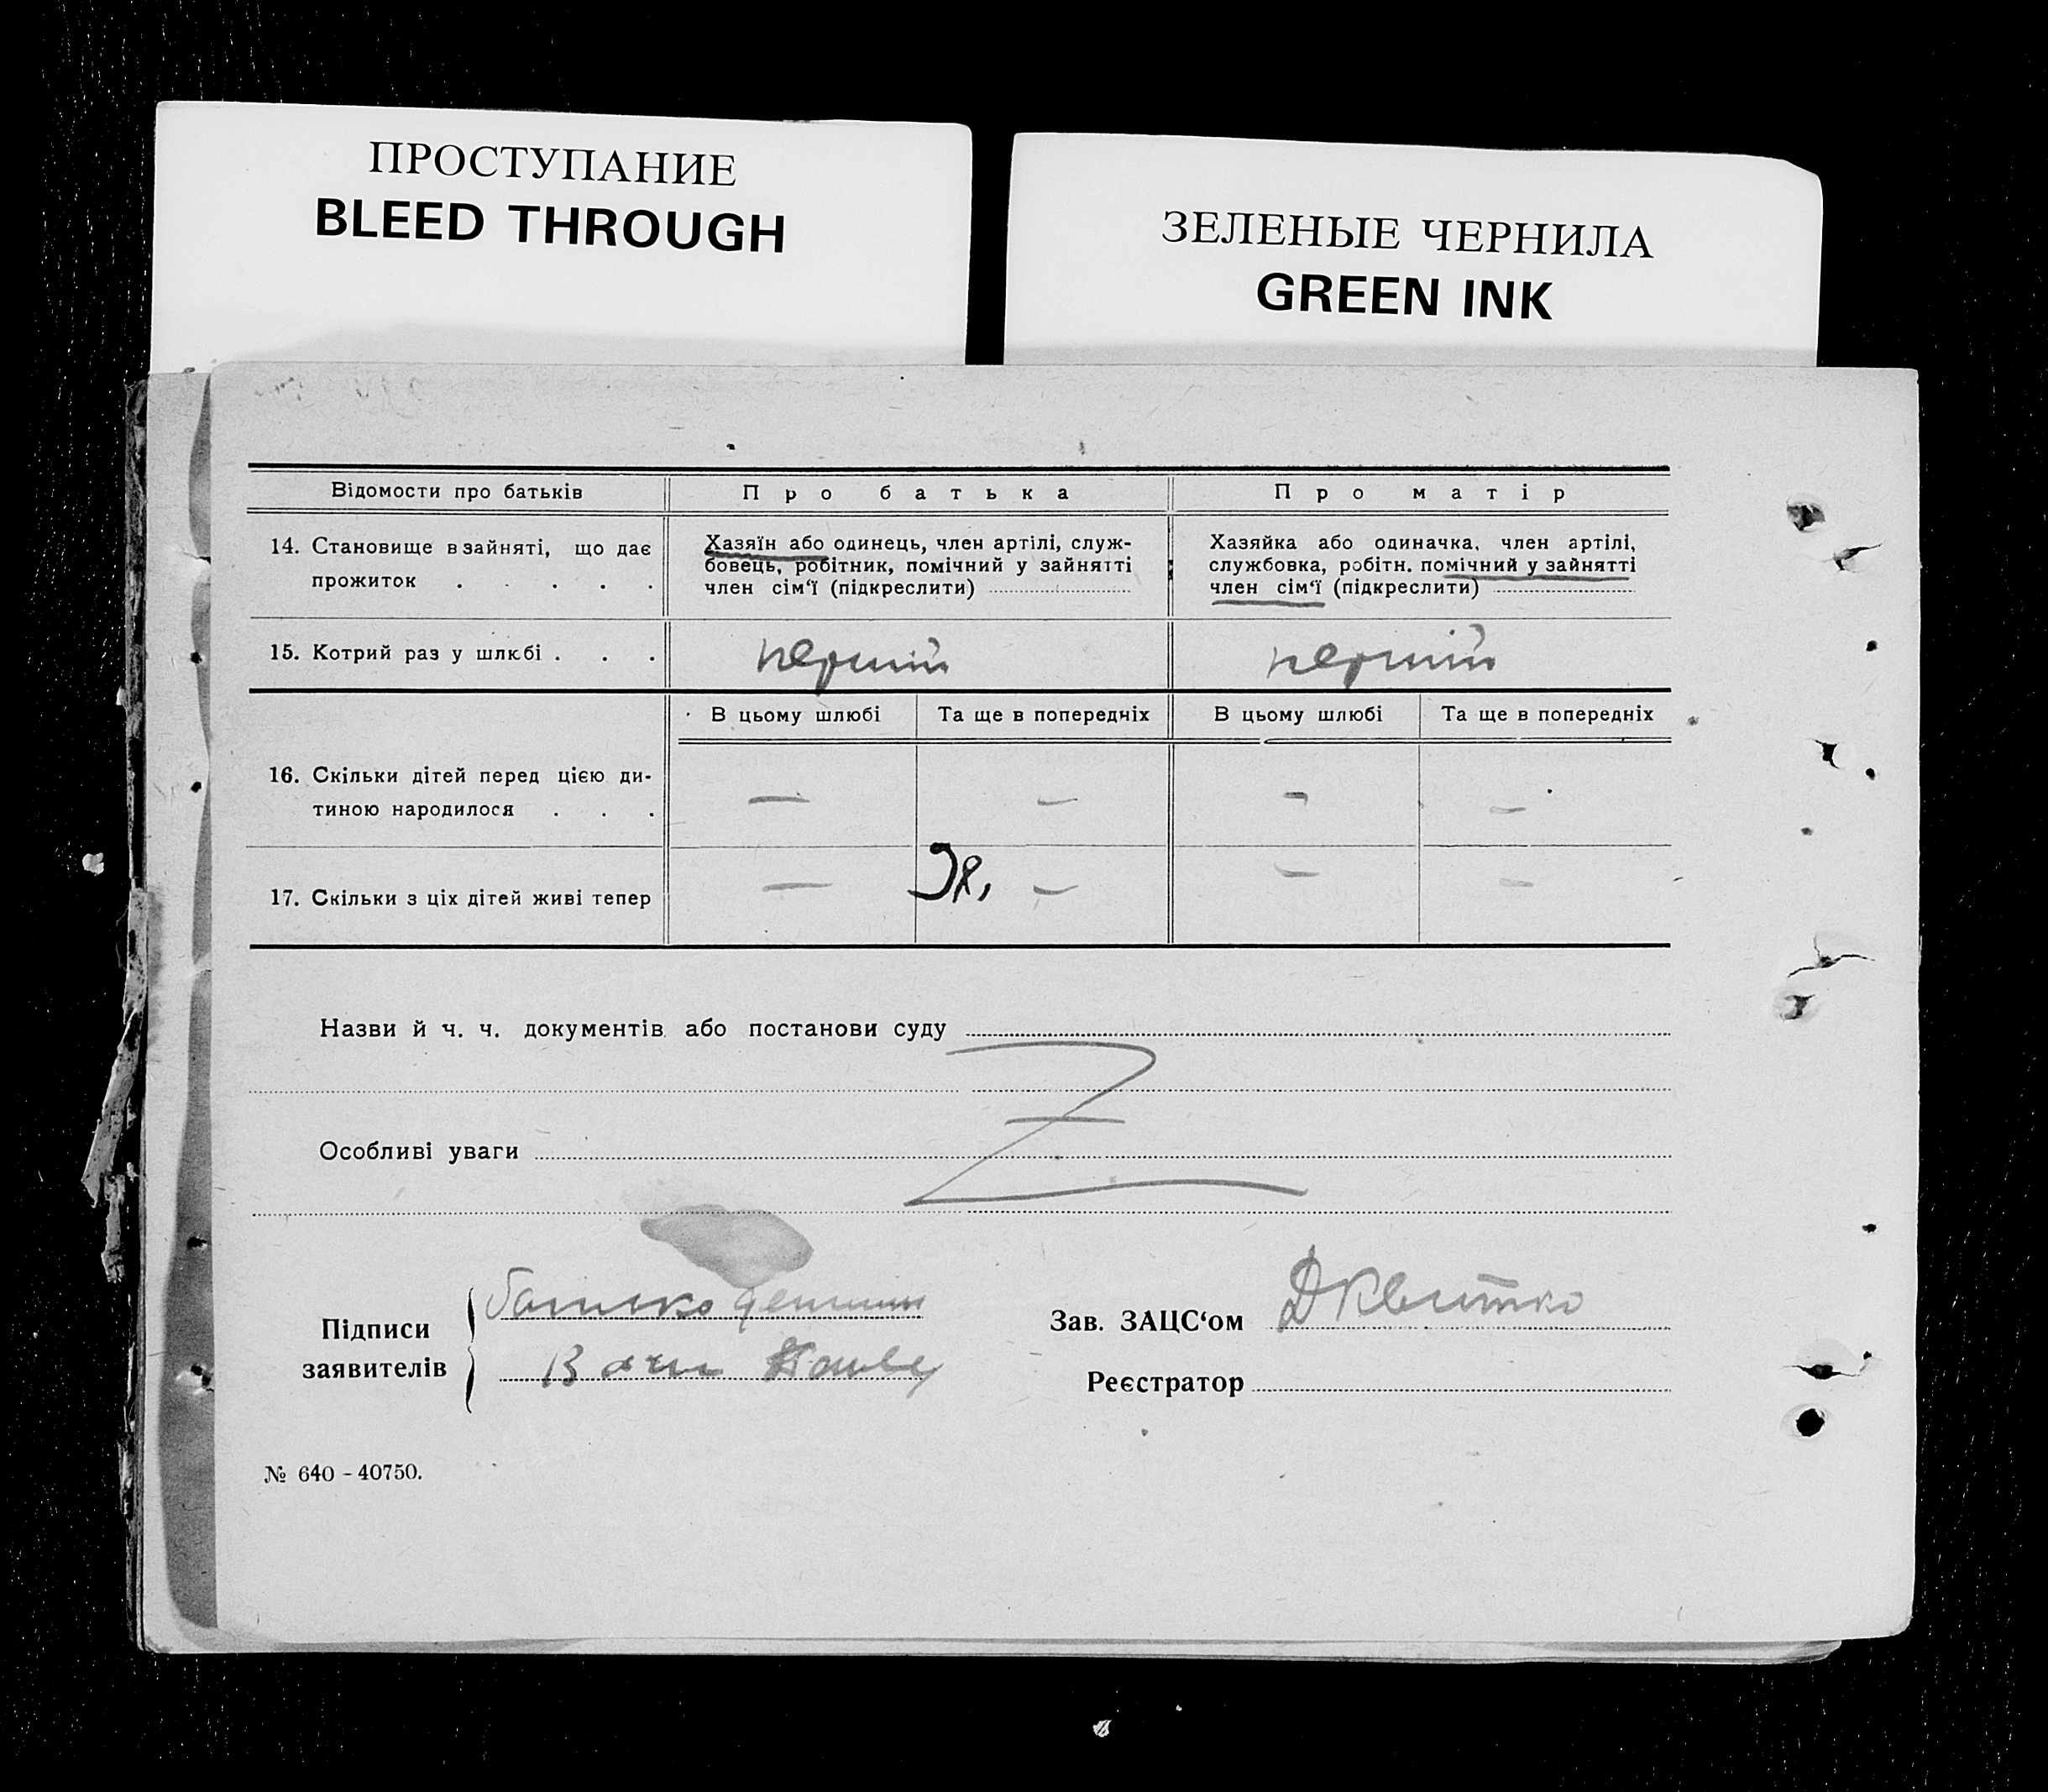 ПРОСТУПАНИЕ
BLEED THROUGH
ЗЕЛЕНЫЕ ЧЕРНИЛА
GREEN INK
Відомости про батьків
Про батька
Про матір
14. Становище в зайняті, що дає
прожиток . . . .
Хазяїн або одинець, член артілі, служ-
бовець, робітник, помічний у зайнятті
член сім‘ї (підкреслити)
Хазяйка або одиначка, член артілі,
службовка, робітн. помічний у зайнятті
член сім‘ї (підкреслити)
15. Котрий раз у шлюбі . . .
перший
перший
В цьому шлюбі
Та ще в попередніх
В цьому шлюбі
Та ще в попередніх
16. Скільки дітей перед цією ди-
тиною народилося . . .
— — — —
17. Скільки з ціх дітей живі тепер
— — — —
Назви й ч. ч. документів або постанови суду
Особливі уваги
Підписи
заявителів
батько дитини
Зав. ЗАЦС‘ом
ДКвитко
Реєстратор
№ 640 - 40750.